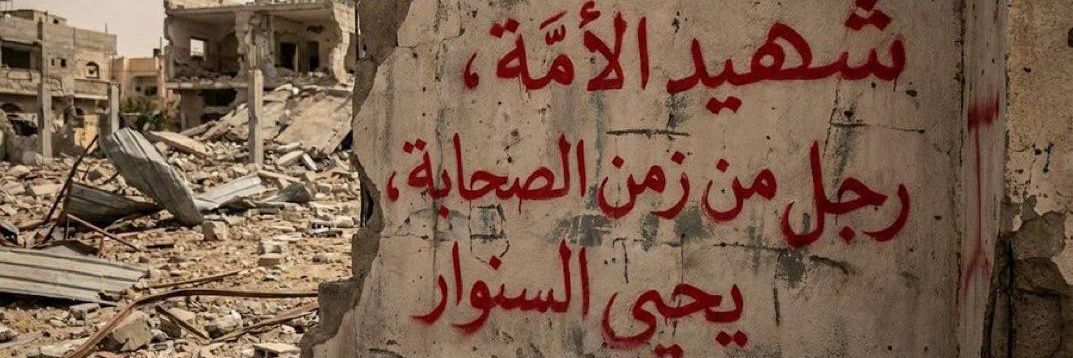 شهيد الأمَّة،
رجل من زمن الصحابة،
يحيى السنوار